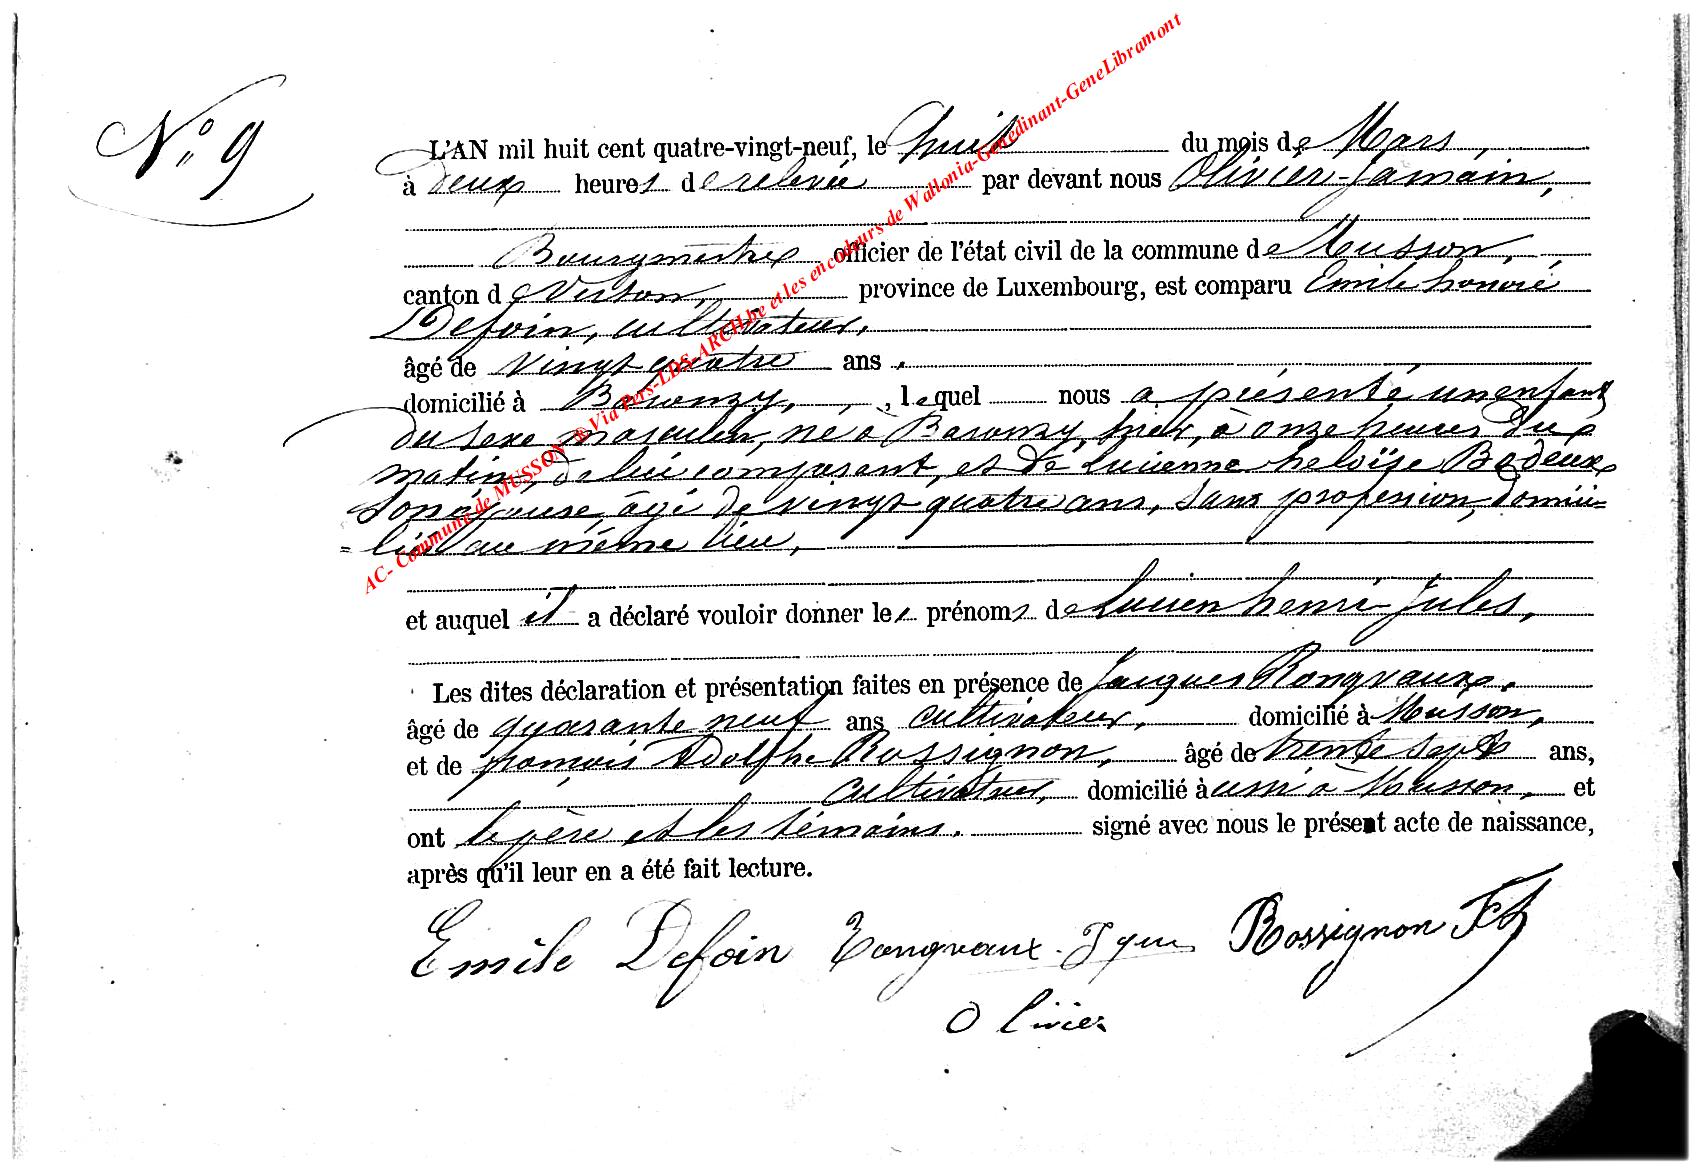 N° 9
L'AN mil huit cent quatre-vingt-neuf, le huit du mois de Mars,
à deux heures de relevée par devant nous Olivier Jamain,
Bourgmestre officier de l'état civil de la commune de Musson,
canton de Virton, province de Luxembourg, est comparu Emile honoré
Defoin, cultivateur,
âgé de vingt quatre ans,
domicilié à Baranzy, , lequel nous a présenté un enfant
du sexe masculin, né à Baranzy, hier, à onze heures du
matin, de lui comparant, et de Lucienne heloïse Bodeux
son épouse, âgé de vingt quatre ans, sans profession, domici=
=liée au même lieu,
et auquel il a déclaré vouloir donner les prénoms de Lucien henri Jules,
Les dites déclaration et présentation faites en présence de Jacques Rongvaux,
âgé de quarante neuf ans cultivateur, domicilié à Musson,
et de françois Adolphe Rossignon, âgé de trente sept ans,
cultivateur, domicilié aussi à Musson, et
ont le père et les témoins. signé avec nous le présent acte de naissance,
après qu'il leur en a été fait lecture.
Emile Defoin Rongvaux Rossignon
Olivier
AC- Commune de MUSSON ® Via Pers-LDS-ARCH.be et les encodeurs de Wallonia-Genedinant-GeneLibramont